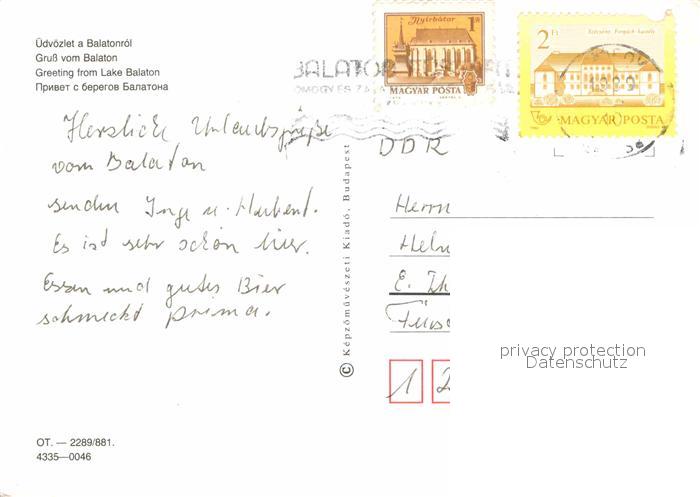 Üdvözlet a Balatonról
Gruß vom Balaton
Greeting from Lake Balaton
Привет с берегов Балатона
Nyírbátor
1 Ft
MAGYAR POSTA
2 Ft
MAGYAR POSTA
BALATON
SOMOGY ÉS ZALA
Herzliche Urlaubsgrüße
vom Balaton
senden Inge u. Herbert.
Es ist sehr schön hier.
Essen und gutes Bier
schmeckt prima.
© Képzőművészeti Kiadó, Budapest
DDR
Herrn
Helm
E. Th
1 2
privacy protection
Datenschutz
OT. — 2289/881.
4335—0046